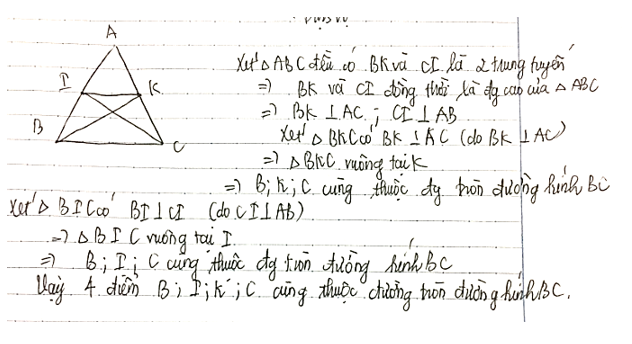 A
I
K
B
C
Xét △ABC đều có BK và CI là 2 trung tuyến
=> BK và CI đồng thời là đg cao của △ABC
=> BK ⊥ AC ; CI ⊥ AB
Xét △BKC có BK ⊥ KC (do BK ⊥ AC)
=> △BKC vuông tại K
=> B; K; C cùng thuộc đg tròn đường kính BC
Xét △BIC có BI ⊥ CI (do CI ⊥ AB)
=> △BIC vuông tại I
=> B; I; C cùng thuộc đg tròn đường kính BC
Vậy 4 điểm B; I; K; C cùng thuộc đường tròn đường kính BC.